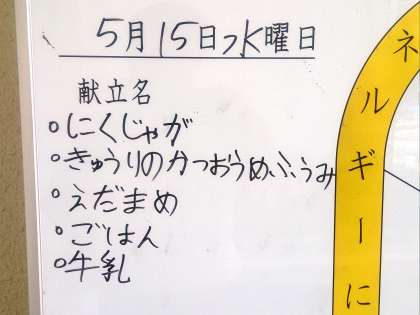 5月15日水曜日
献立名
○にくじゃが
○きゅうりのかつおうめふうみ
○えだまめ
○ごはん
○牛乳
ネルギーに